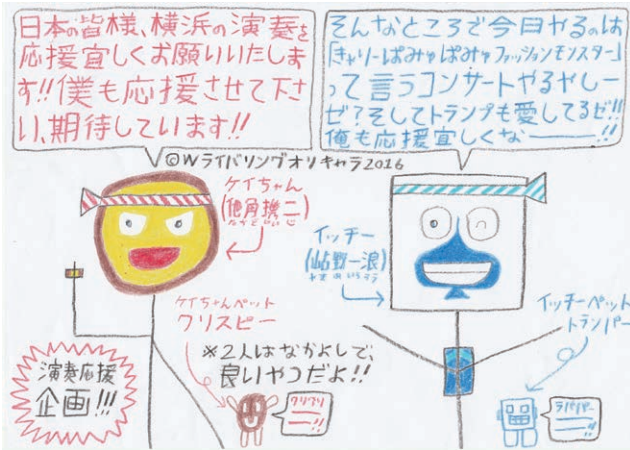 日本の皆様、横浜の演奏を
応援宜しくお願いいたしま
す!!僕も応援させて下さ
い、期待しています!!
そんなところで今日やるのは
「きゃりーぱみゅぱみゅファッションモンスター」
って言うコンサートやるやしー
ゼ?そしてトランプも愛してるゼ!!
俺も応援宜しくなー!!
©Wライバリングオリキャラ2016
ケイちゃん
イッチー
ケイちゃんペット
クリスピー
※2人はなかよしで、
良いやつだよ!!
イッチーペット
トランパー
演奏応援
企画!!!
クリクリ
ー!!
ラパパー
ー!!